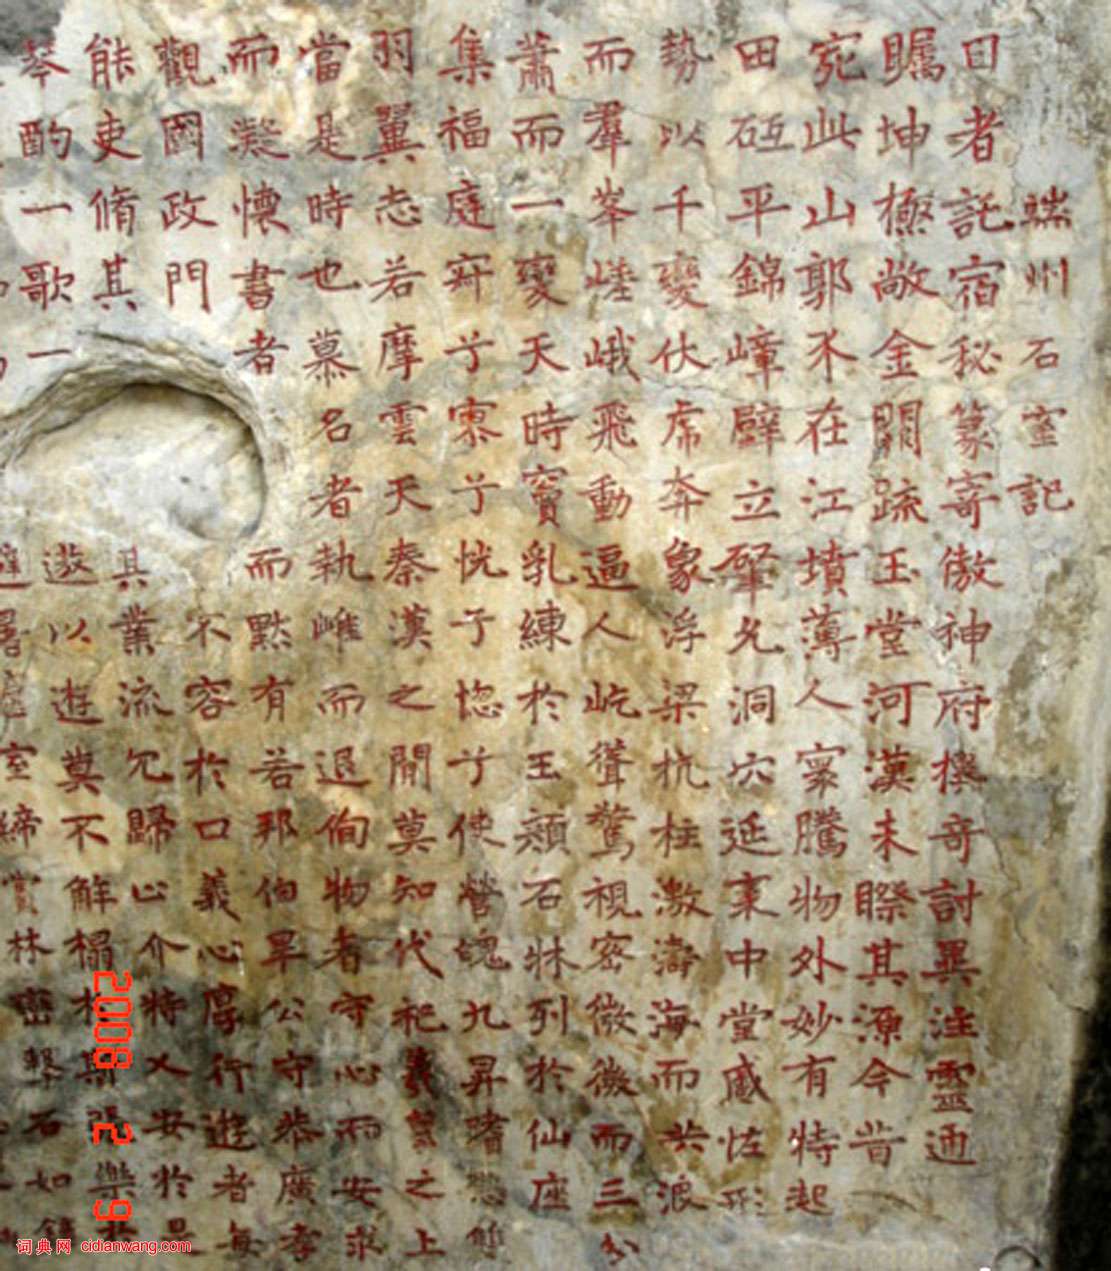 端州石室記
日者託宿秘篆寄傲神府撰奇討異注靈通
矚坤極敞金闕疏玉堂河漢未睽其源今昔
宛此山郭不在江墳薄人寰騰物外妙有特起
田砥平錦嶂壁立肇允洞穴延袤中堂盛怯形
勢以千變伏虎奔象浮梁抗柱激濤海而共浪
而羣峯嵯峨飛動逼人屹聳驚視密微微而三分
蕭而一變天時竇乳練於玉顏石牀列於仙座
集福庭兮寥兮恍兮惚兮使營魄九昇嗜慾
羽翼志若摩雲天秦漢之開莫知代祀羲之上
當是時也慕名者執雌而退徇物者守心而安求
而凝懷書者而默有若邦伯畢公守恭廣孝
觀國政門不容於口義心厚行遊者每
能吏脩其其業流冗歸心介特乂安於是
琴酌一歌一遨以遊莫不解榻
避暑虛室締賞林密擊石如鐘
2008 12 9
词典网 cidianwang.com